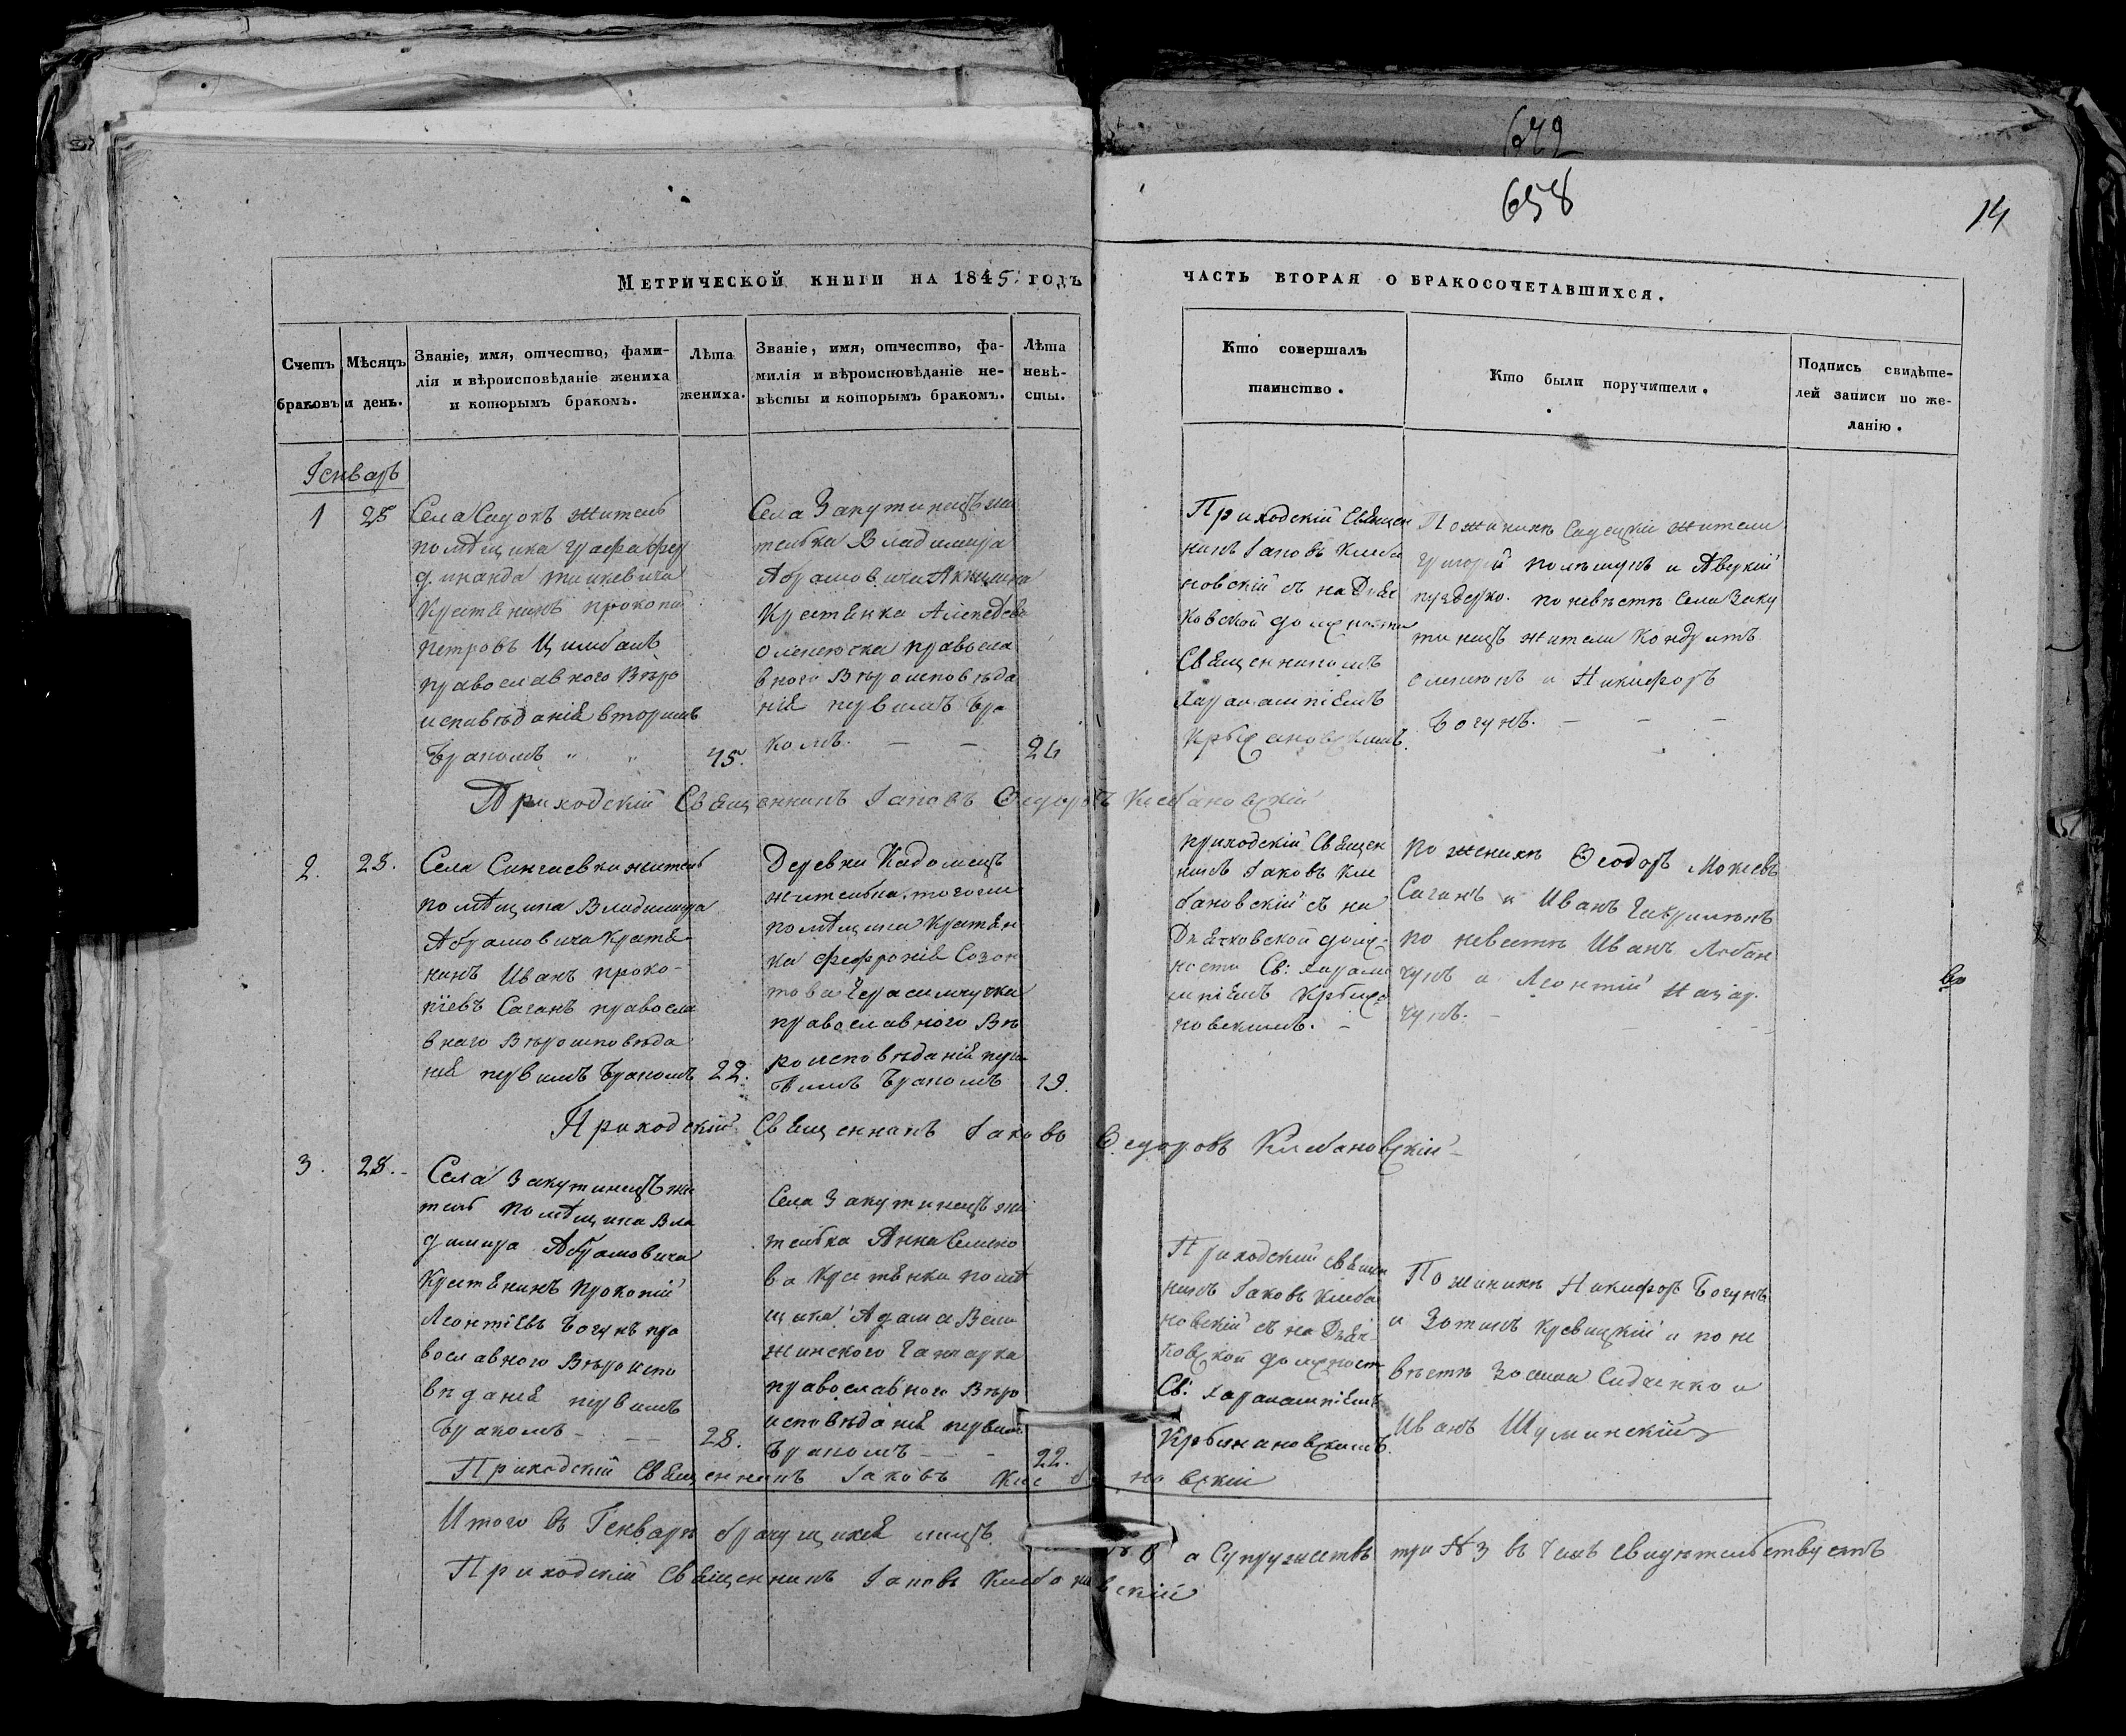 672
658
14
Метрической книги на 1845. годъ
часть вторая о бракосочетавшихся.
Счетъ браковъ
Мѣсяцъ и день.
Званіе, имя, отчество, фами-
лія и вѣроисповѣданіе жениха
и которымъ бракомъ.
Лѣта
жениха.
Званіе, имя, отчество, фа-
милія и вѣроисповѣданіе не-
вѣсты и которымъ бракомъ.
Лѣта
невѣ-
сты.
Кто совершалъ
таинство.
Кто были поручители.
Подпись свидѣте-
лей записи по же-
ланію.
Генварь
1
28
Села Садокъ житель
помѣщика графа Фер
динанда тишкевича
Крестьянинъ прокопій
петровъ Цимбалъ
православного Вѣро
исповѣданія вторымъ
бракомъ
45.
Села Закутинецъ жи
телька Владимира
Абрамовича
Крестьянка
православ
вного Вѣроисповѣда
нія первымъ бра
комъ. — —
24
Приходскій Священ
никъ Іаковъ Клеба
новскій съ на Дьяч
ковской должности
Священникомъ
Харалампіемъ
По женихѣ Садецкіи жители
Григорій и Аверкій
по невѣстѣ Села Заку
тинецъ жители Кондратъ
и Никифоръ
Богунъ. — — —
Приходскій Священникъ Іаковъ Федоровъ Клебановскій
2.
28.
Села Сингаевки житель
помѣщика Владимира
Абрамовича Крестья
нинъ Иванъ проко-
піевъ Саганъ правосла
внаго Вѣроисповѣда
нія первымъ бракомъ
22.
Деревни Кадомецъ
жителька. того же
помѣщика Крестьян
ка Феєронія Созон
това Герасимчучка
православного Вѣ
роисповѣданія пер
вымъ бракомъ
19.
приходскій Священ
никъ Іаковъ Кле
бановскій съ на
Дьячковской долж-
ности Св: Харала
мпіемъ
новскимъ. —
по женихѣ Феодоръ Мокіевъ
Саганъ и Иванъ
по невестѣ Иванъ Лобан
чукъ и Леонтій Назар
чукъ. —
Приходскій Священникъ Іаковъ Федоровъ Клебановскій —
3.
28. -
Села Закутинецъ жи
тель помѣщика Вла
димира Абрамовича
Крестьянинъ Прокопій
Леонтіевъ Богунъ пра
вославного Вѣроиспо
вѣданія первымъ
бракомъ —
28.
Села Закутинецъ жи
телька Анна Семено
ва Крестьянка помѣ
щика Адама
православного Вѣро
исповѣданія первымъ
бракомъ —
22.
Приходскій Священ
никъ Іаковъ Клеба
новскій съ на Дьяч-
ковской должност
Св: Харалампіемъ
По женихѣ Никифоръ Богунъ
и Зотикъ Кревицкій и по не
вѣстѣ Зосима Сидченко и
Иванъ Шуминскій
Приходскій Священникъ Іаковъ Клебановскій
Итого въ Генварѣ брачущихся лицъ № 6 а Супружествъ три № 3 въ чемъ свидѣтельствуетъ
Приходскій Священникъ Іаковъ Клебановскій